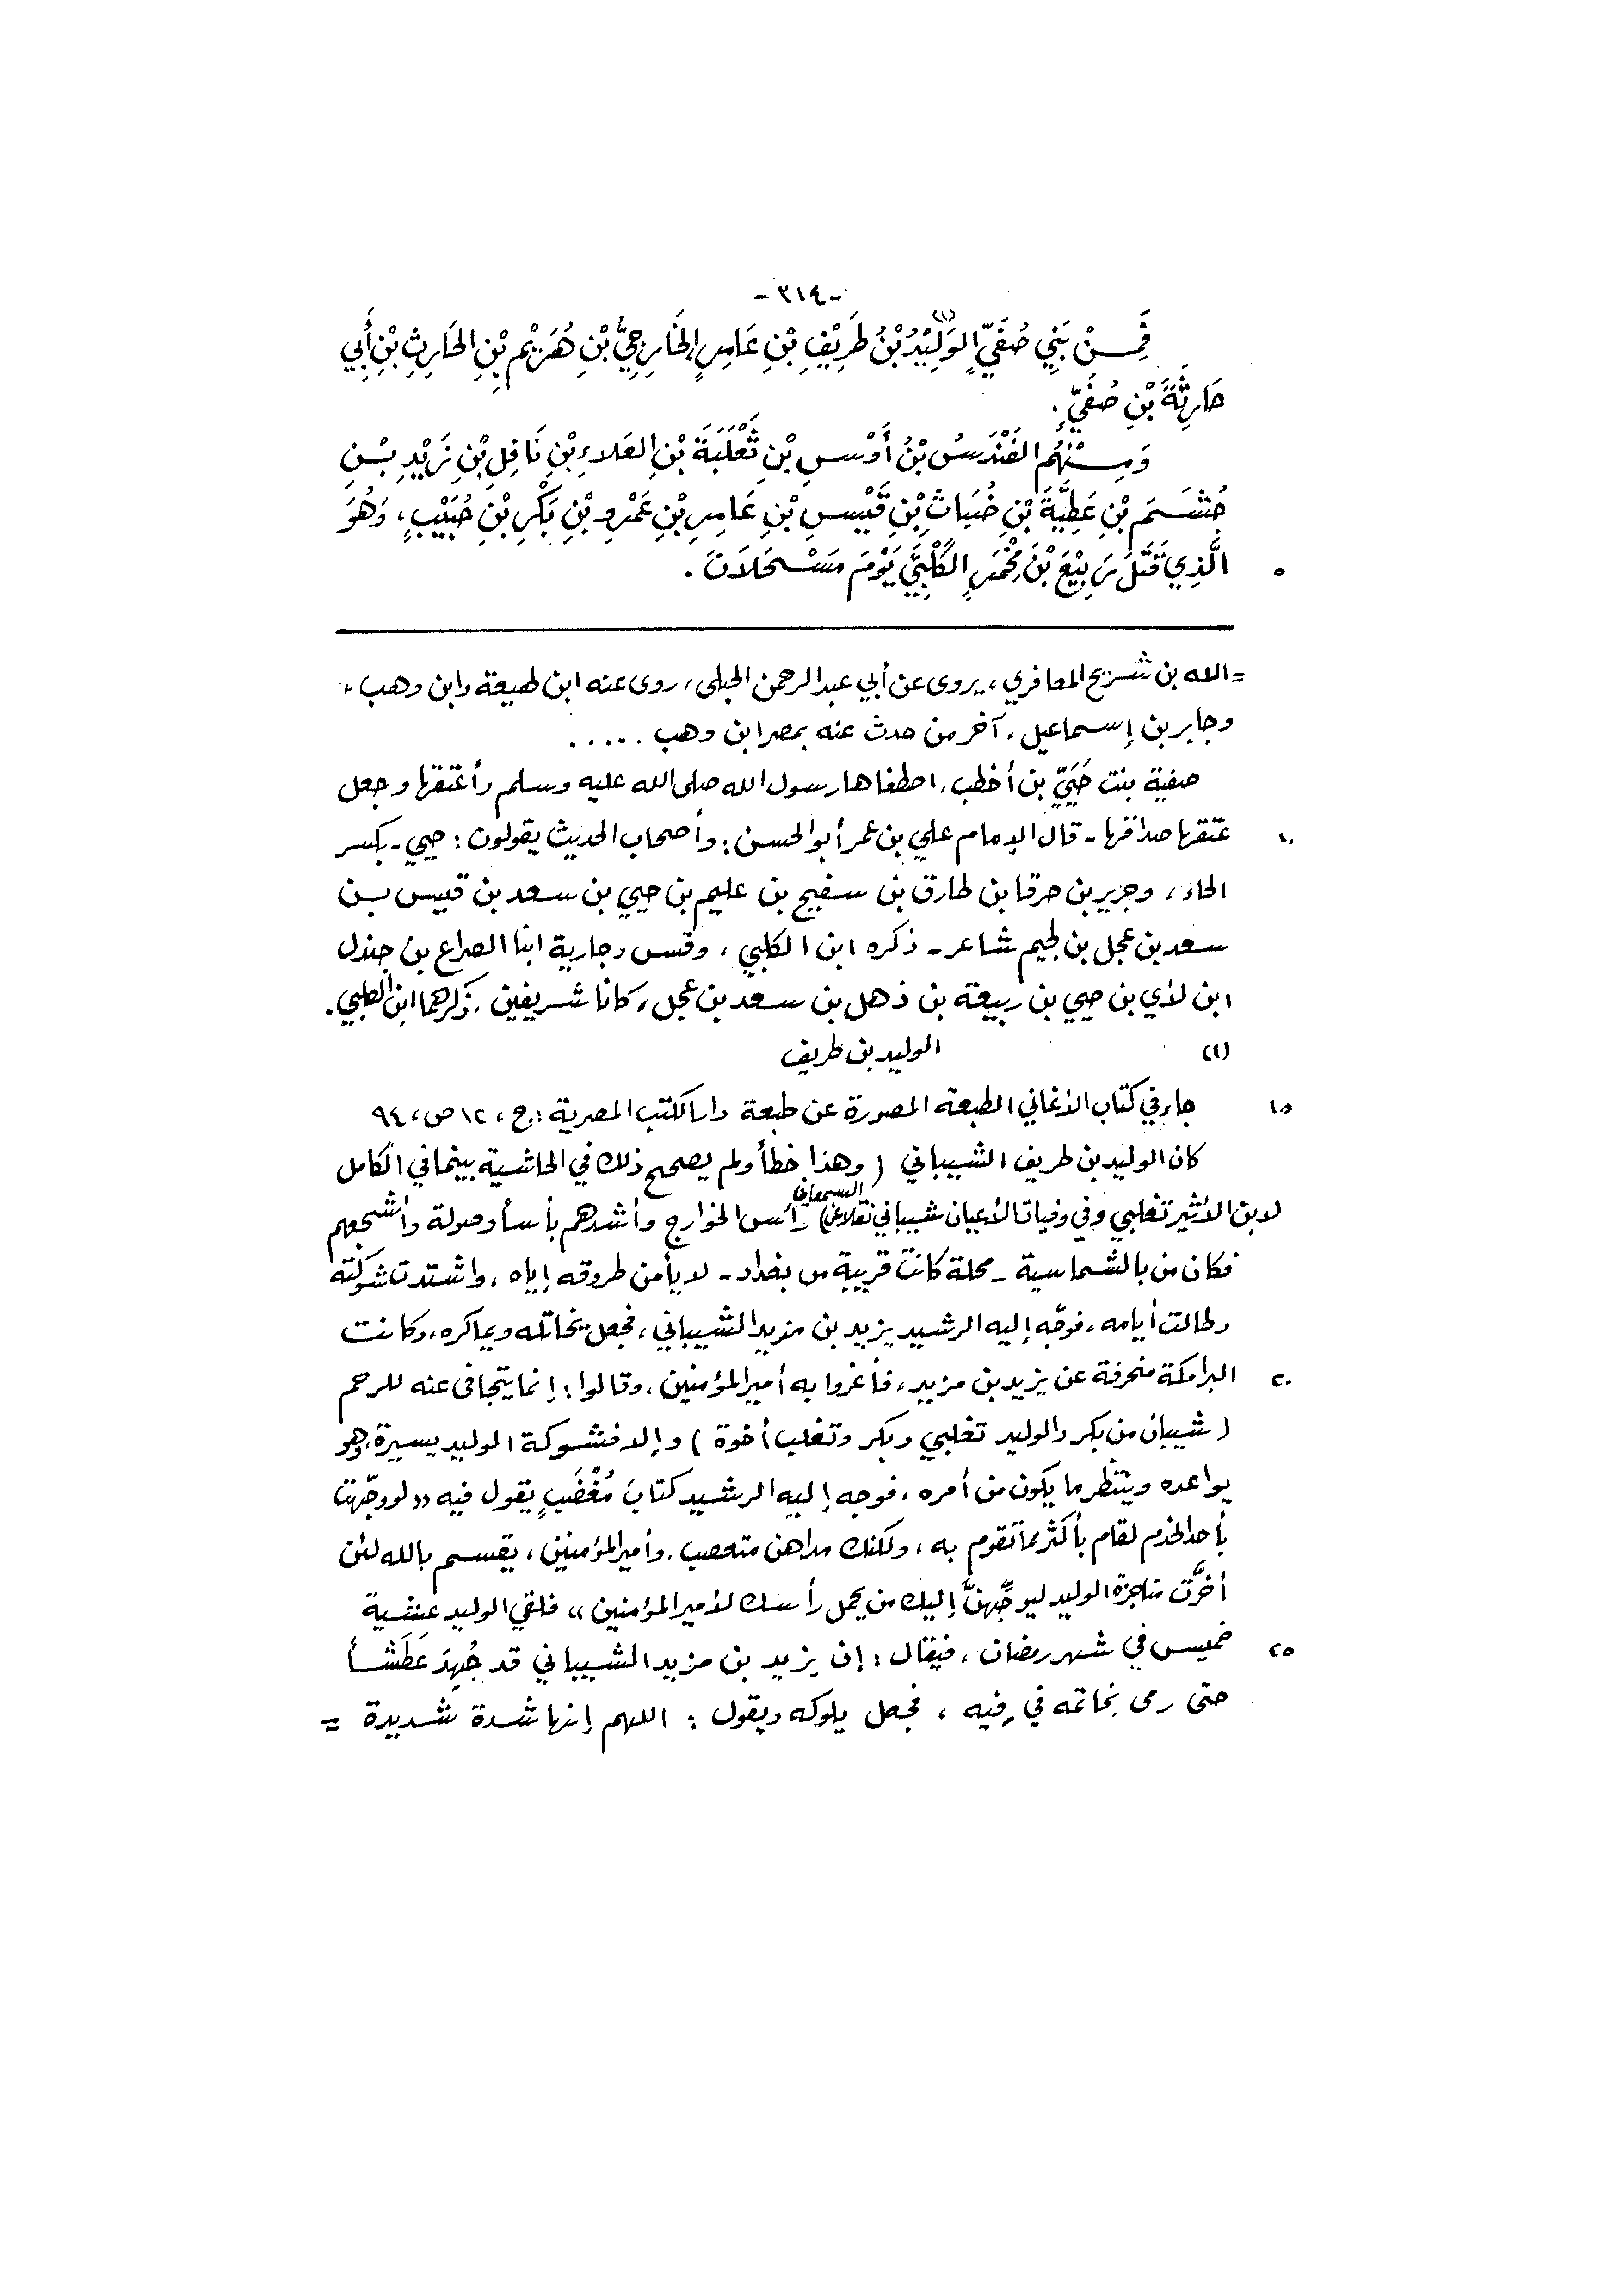 -٣١٤-
فَمِنْ بَنِي صُفَيٍّ الوَلِيْدُ (١) بْنُ طَرِيْفِ بْنِ عَامِرٍ الخَارِجِيُّ بْنِ هُرَيْمِ بْنِ الحَارِثِ بْنِ أَبِي
حَارِثَةَ بْنِ صُفَيٍّ.
وَمِنْهُم الفَنْدَسُ بْنُ أَوْسِ بْنِ ثَعْلَبَةَ بْنِ العَلاءِ بْنِ نَافِلِ بْنِ زَيْدِ بْنِ
جُشَمَ بْنِ عَطِيَّةَ بْنِ خُبَاثِ بْنِ قَيْسِ بْنِ عَامِرِ بْنِ عَمْرِو بْنِ بَكْرِ بْنِ حُبَيْبٍ، وَهُوَ
٥ الَّذِي قَتَلَ رَبِيْعَ بْنَ مِخْمَرٍ الكَلْبِيَّ يَوْمَ مَسْحَلَانَ.
= الله بن شريح المعافري، يروى عن أبي عبد الرحمن الحبلى، روى عنه ابن لهيعة وابن وهب،
وجابر بن إسماعيل، آخر من حدث عنه بمصر ابن وهب .....
صفية بنت حُيَيّ بن أخطب، اصطفاها رسول الله صلى الله عليه وسلم وأعتقها وجعل
١٠ عتقها صداقها - قال الإمام علي بن عمر أبو الحسن: وأصحاب الحديث يقولون: حيي - بكسر
الحاء، وجرير بن حرقا بن طارق بن سفيح بن عليم بن حيي بن سعد بن قيس بن
سعد بن عجل بن لجيم شاعر - ذكره ابن الكلبي، وقسى وجارية ابنا الصراع بن جندل
ابن لأي بن حيي بن ربيعة بن ذهل بن سعد بن عجل، كانا شريفين، ذكرهما ابن الكلبي.
(١) الوليد بن طريف
١٥ جاء في كتاب الأغاني الطبعة المصورة عن طبعة دار الكتب المصرية: ج، ١٢ ص، ٩٤
كان الوليد بن طريف الشيباني (وهذا خطأ ولم يصحح ذلك في الحاشية بينما في الكامل
لابن الأثير تغلبي وفي وفيات الأعيان شيباني نقلا عن السمعاني) رأس الخوارج وأشدهم بأسأ وصولة وأشجعهم
فكان من بالشماسية - محلة كانت قريبة من بغداد - لا يأمن طروقه إياه، واشتدت شوكته
وطالت أيامه، فوجّه إليه الرشيد يزيد بن مزيد الشيباني، فجعل يخاتله ويماكره، وكانت
٢٠ البرامكة منحرفة عن يزيد بن مزيد، فأغروا به أمير المؤمنين، وقالوا: إنما يتجافى عنه للرحم
(شيبان من بكر والوليد تغلبي وبكر وتغلب أخوة) وإلا فشوكة الوليد يسيرة، وهو
يواعده وينتظر ما يكون من أمره، فوجه إليه الرشيد كتابَ مُغْضَبٍ يقول فيه «لو وجّهت
بأحد الخدم لقام بأكثر مما تقوم به، ولكنك مداهن متعصب، وأمير المؤمنين، يقسم بالله لئن
أخَّرت مناجزة الوليد ليوجِّهنَّ إليك من يحمل رأسك لأمير المؤمنين» فلقي الوليد عشية
٢٥ خميس في شهر رمضان، فيقال: إن يزيد بن مزيد الشيباني قد جُهِدَ عَطَشاً
حتى رمى بخاتمه في فِيه، فجعل يلوكه ويقول: اللهم إنها شدة شديدة =